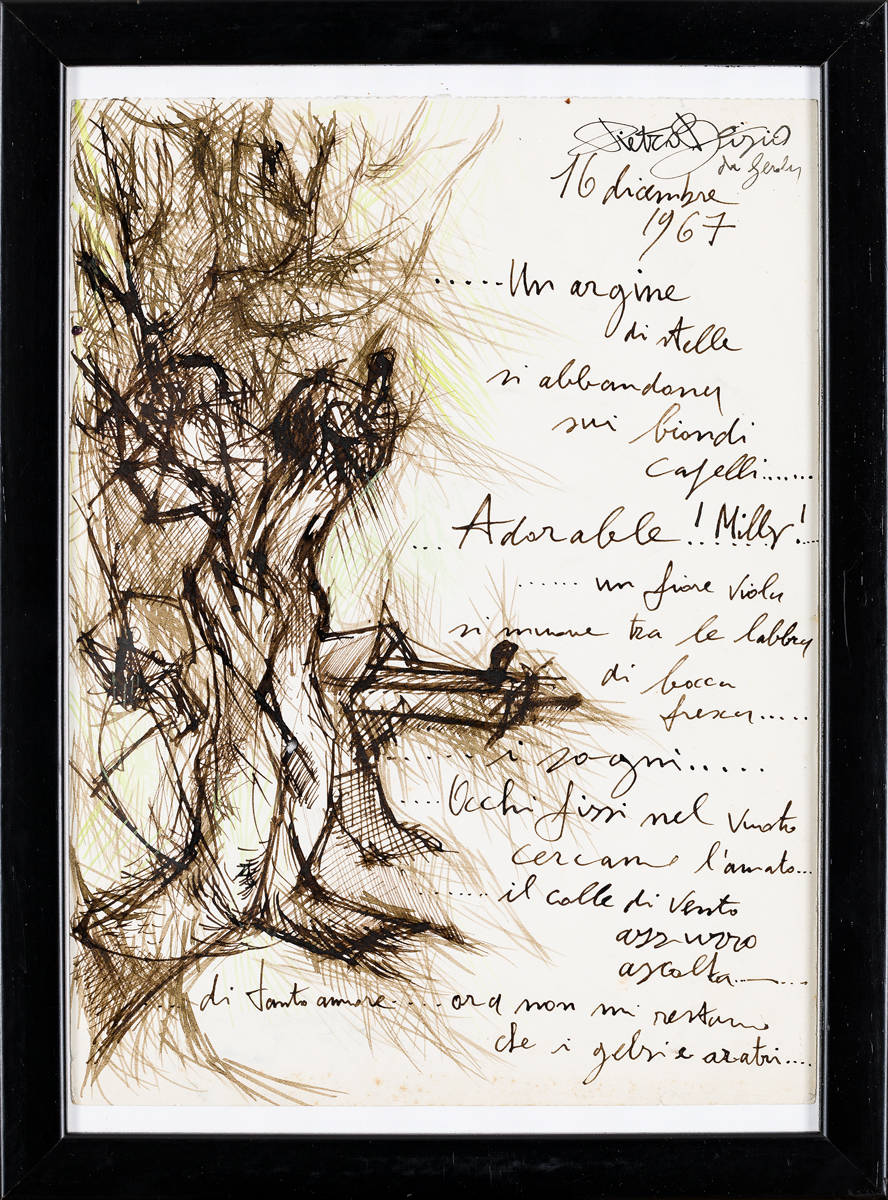 Pietro
16 dicembre
1967
.....Un argine
di stelle
si abbandona
sui biondi
capelli.......
... Adorabile! Milly!...
...... un fiore viola
si muove tra le labbra
di bocca
fresca.....
...... i sogni.....
....Occhi fissi nel vuoto
cercano l'amato...
......il colle di vento
azzurro
ascolta........
.... di tanto amore..... ora non mi restano
che i gelsi e aratri....